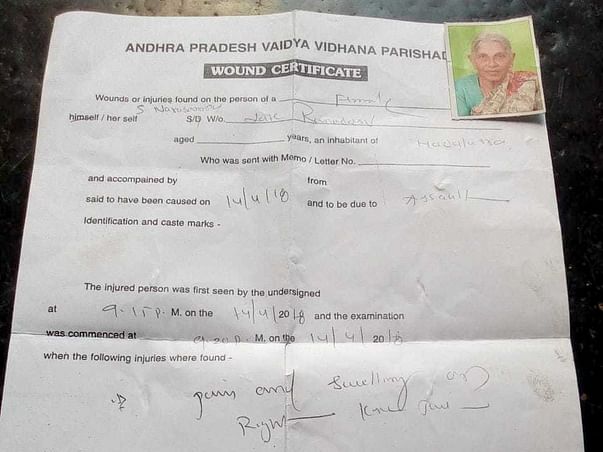 ANDHRA PRADESH VAIDYA VIDHANA PARISHAD
WOUND CERTIFICATE
Wounds or injuries found on the person of a Female
himself / her self S Narasamma S/D W/o. Late
aged years, an inhabitant of
Who was sent with Memo / Letter No.
and accompained by from
said to have been caused on 14/4/18 and to be due to Assault
Identification and caste marks -
The injured person was first seen by the undersigned
at 9.15 P. M. on the 14/4/2018 and the examination
was commenced at 9.20 P. M. on the 14/4/2018
when the following injuries where found -
pain and swelling on
Right Knee